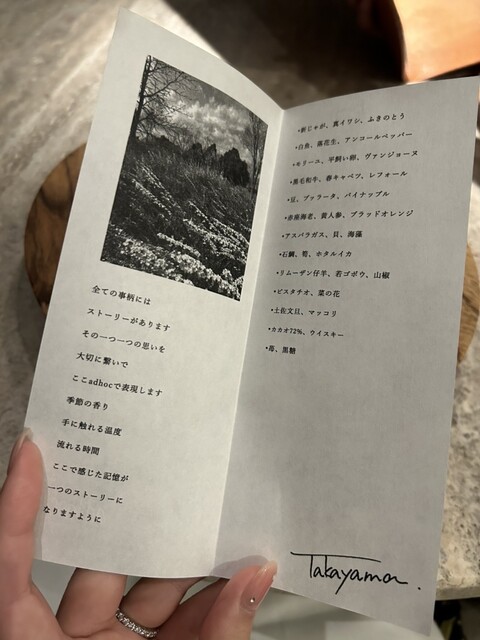 全ての事柄には
ストーリーがあります
その一つ一つの思いを
大切に繋いで
ここadhocで表現します
季節の香り
手に触れる温度
流れる時間
ここで感じた記憶が
一つのストーリーに
なりますように
•新じゃが、真イワシ、ふきのとう
•白魚、落花生、アンコールペッパー
•モリーユ、平飼い卵、ヴァンジョーヌ
•黒毛和牛、春キャベツ、レフォール
•豆、ブッラータ、パイナップル
•赤座海老、黄人参、ブラッドオレンジ
•アスパラガス、貝、海藻
•石鯛、筍、ホタルイカ
•リムーザン仔羊、若ゴボウ、山椒
•ピスタチオ、菜の花
•土佐文旦、マッコリ
•カカオ72%、ウイスキー
•苺、黒糖
Takayama.